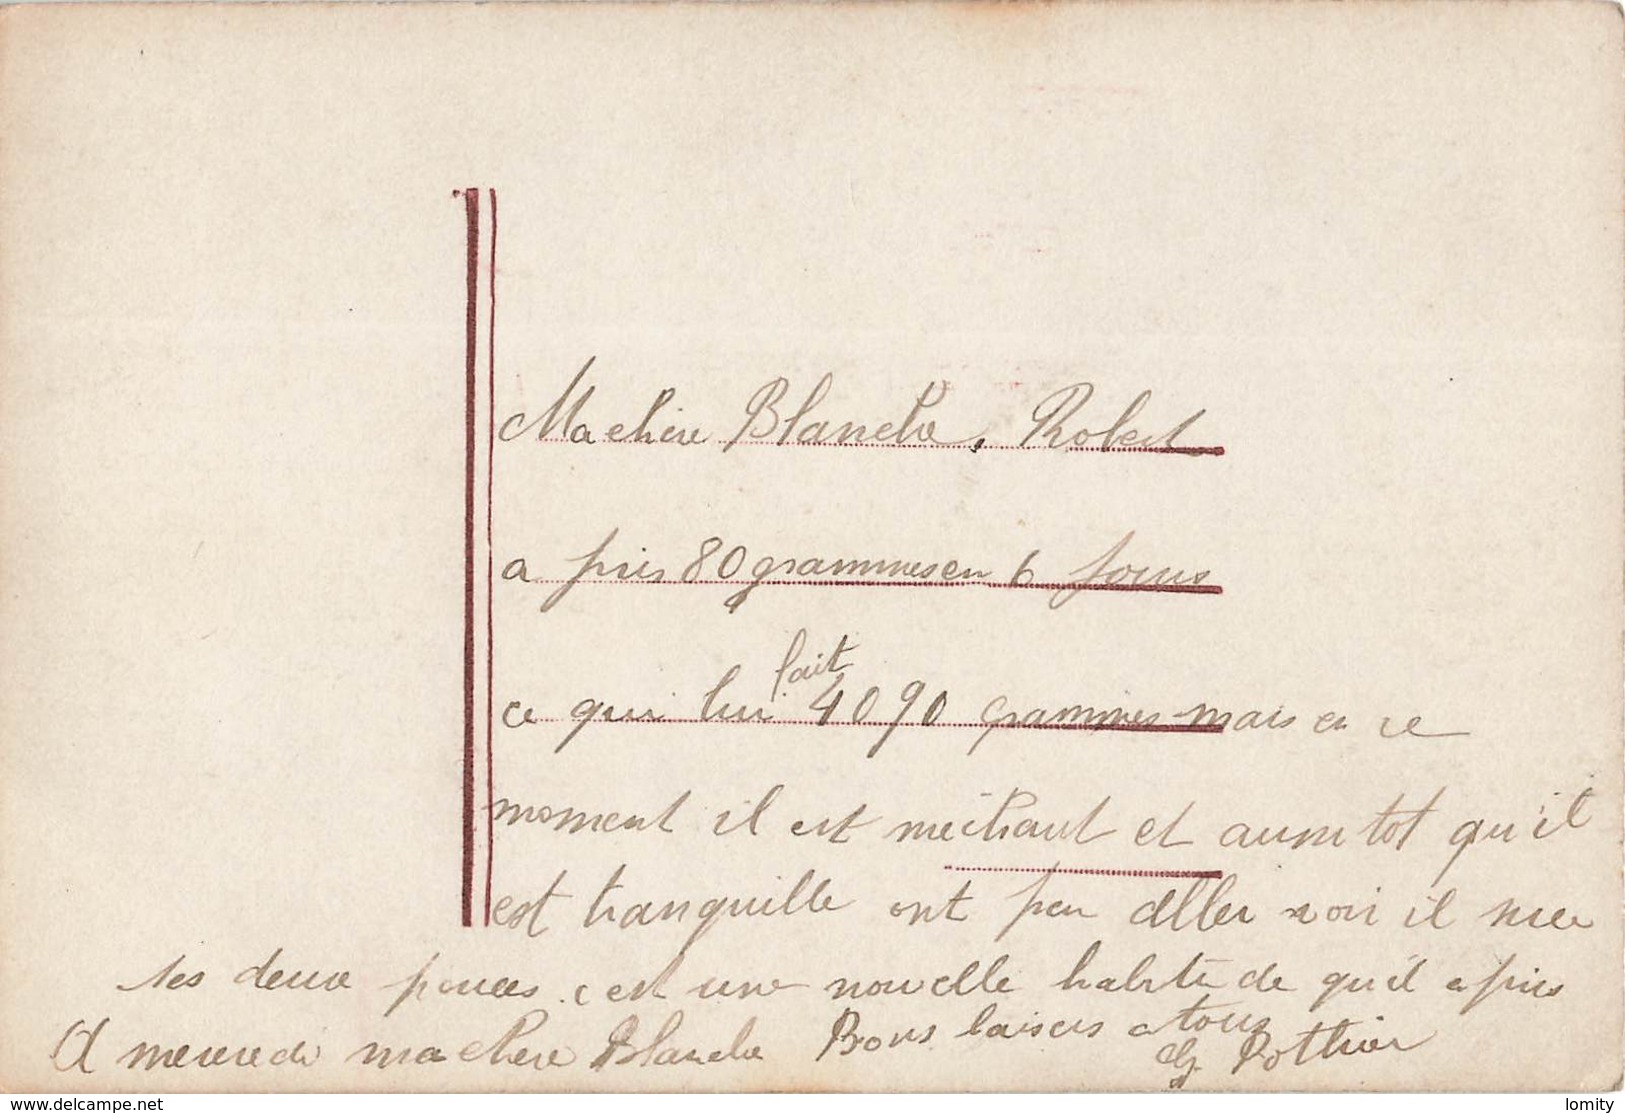 Ma chère Blanche. Robert
a pris 80 grammes en 6 jours
ce qui lui fait 4090 grammes mais en ce
moment il est méchant et aussitot qu'il
est tranquille ont peu aller voir il suce
ses deux pouces c'est une nouvelle habitude qu'il a pris
A mercredi ma chère Blanche Bons baisers a tous
G. Pothier
www.delcampe.net
lomity